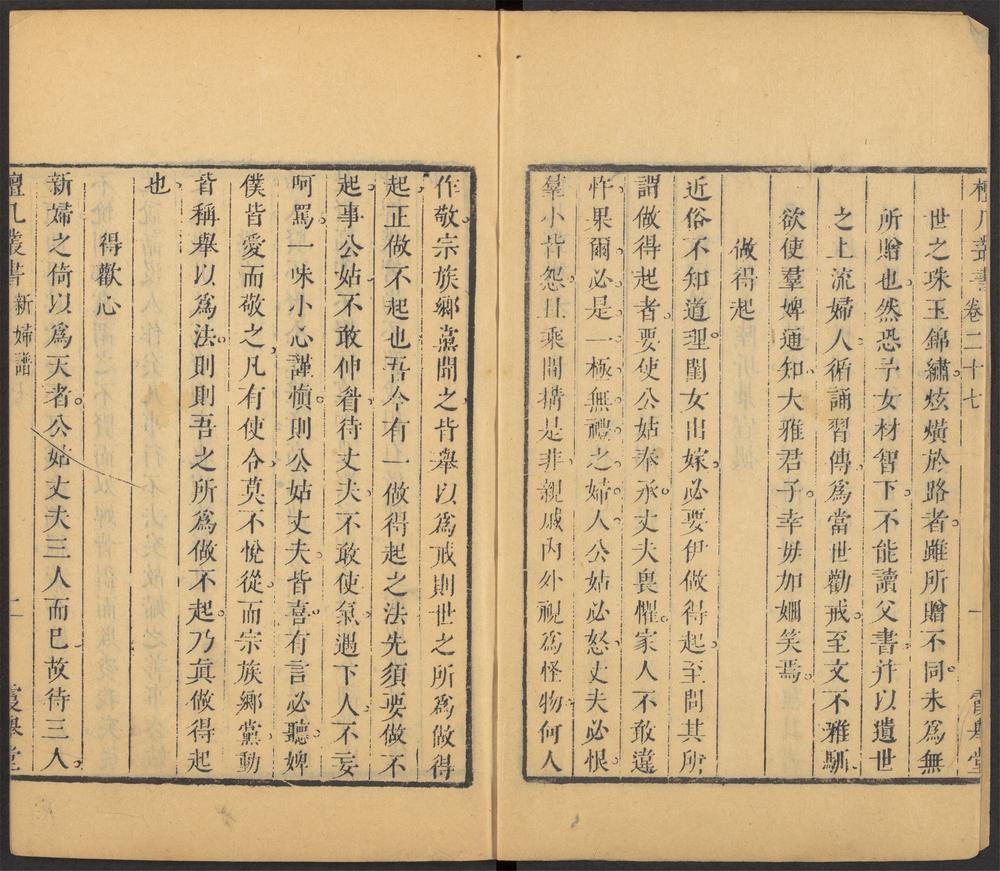 檀几叢書 卷二十七 一 霞舉堂
世之珠玉錦繡炫熿於路者雖所贈不同未爲無
所贈也然恐予女材智下不能讀父書幷以遺世
之上流婦人循誦習傳爲當世勸戒至文不雅馴
欲使羣婢通知大雅君子幸毋加姍笑焉
做得起
近俗不知道理閨女出嫁必要伊做得起至問其所
謂做得起者要使公姑奉承丈夫畏懼家人不敢違
忤果爾必是一極無禮之婦人公姑必怒丈夫必恨
羣小皆怨且乘間搆是非親戚內外視爲怪物何人
作敬宗族鄉黨聞之皆舉以爲戒則世之所爲做得
起正做不起也吾今有一做得起之法先須要做不
起事公姑不敢伸眷待丈夫不敢使氣遇下人不妄
呵罵一味小心謹慎則公姑丈夫皆喜有言必聽婢
僕皆愛而敬之凡有使令莫不悅從而宗族鄉黨動
皆稱舉以爲法則則吾之所爲做不起乃眞做得起
也
得歡心
新婦之倚以爲天者公姑丈夫三人而已故待三人
檀几叢書 新婦譜 二 霞舉堂